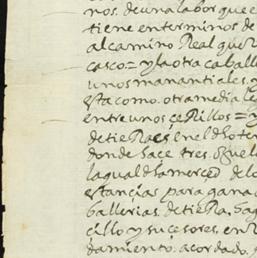 nos. de una labor que e
tiene en terminos de
al camino Real que
casco = y la otra caballe
unos manantiales. y
esta como. otra media le
entre unos cerrillos = y
de tie Ras en el
donde hace tres.
la qual
estancias para gana
ballerias. de tie Ra.
cillo y sucesores. en
damiento. acordado.